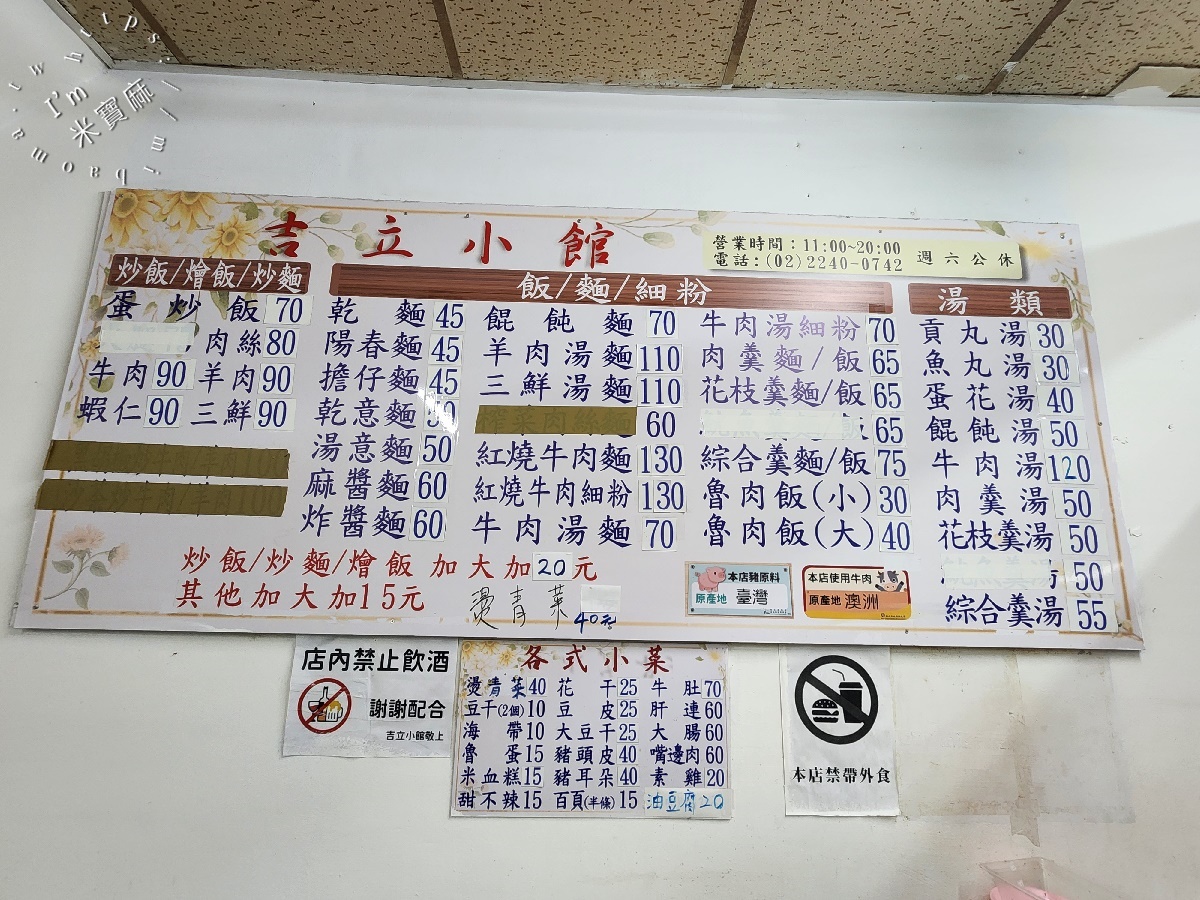 I'm
米寶麻
吉立小館
營業時間：11:00~20:00
電話：(02)2240-0742
週六公休
炒飯/燴飯/炒麵
蛋炒飯 70
肉絲 80
牛肉 90 羊肉 90
蝦仁 90 三鮮 90
飯/麵/細粉
乾麵 45
陽春麵 45
擔仔麵 45
乾意麵 50
湯意麵 50
麻醬麵 60
炸醬麵 60
餛飩麵 70
羊肉湯麵 110
三鮮湯麵 110
榨菜肉絲麵 60
紅燒牛肉麵 130
紅燒牛肉細粉 130
牛肉湯麵 70
牛肉湯細粉 70
肉羹麵/飯 65
花枝羹麵/飯 65
65
綜合羹麵/飯 75
魯肉飯(小) 30
魯肉飯(大) 40
湯類
貢丸湯 30
魚丸湯 30
蛋花湯 40
餛飩湯 50
牛肉湯 120
肉羹湯 50
花枝羹湯 50
50
綜合羹湯 55
炒飯/炒麵/燴飯 加大加20元
其他加大加15元
燙青菜 40元
本店豬原料
原產地 臺灣
本店使用牛肉
原產地 澳洲
店內禁止飲酒
謝謝配合
吉立小館敬上
各式小菜
燙青菜 40 花干 25 牛肚 70
豆干(2個) 10 豆皮 25 肝連 60
海帶 10 大豆干 25 大腸 60
魯蛋 15 豬頭皮 40 嘴邊肉 60
米血糕 15 豬耳朵 40 素雞 20
甜不辣 15 百頁(半條) 15 油豆腐 20
本店禁帶外食